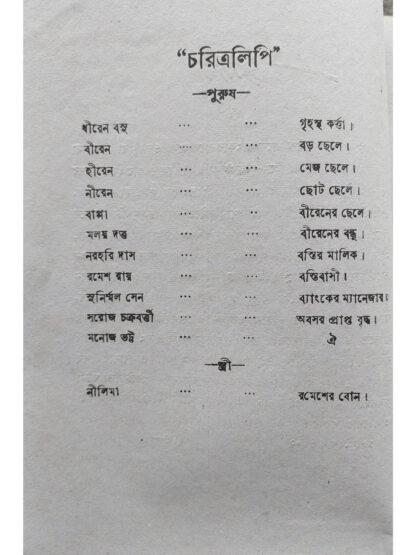 “চরিত্রলিপি”
—পুরুষ—
ধীরেন বসু ... ... গৃহস্থ কর্ত্তা।
বীরেন ... ... বড় ছেলে।
হীরেন ... ... মেজ ছেলে।
নীরেন ... ... ছোট ছেলে।
বাপ্পা ... ... বীরেনের ছেলে।
মলয় দত্ত ... ... বীরেনের বন্ধু।
নরহরি দাস ... ... বস্তির মালিক।
রমেশ রায় ... ... বস্তিবাসী।
সুনির্মল সেন ... ... ব্যাংকের ম্যানেজার।
সরোজ চক্রবর্ত্তী ... ... অবসর প্রাপ্ত বৃদ্ধ।
মনোজ ভট্ট ... ... ঐ
—স্ত্রী—
নীলিমা ... ... রমেশের বোন।